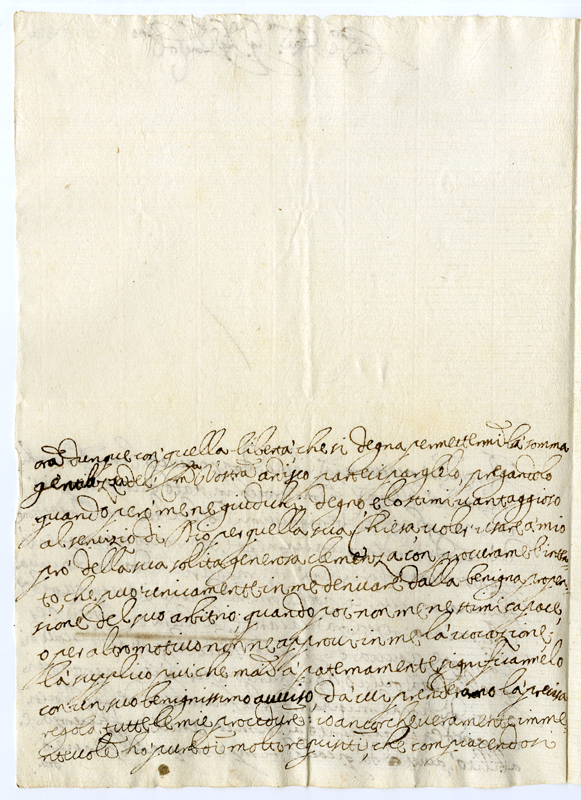 ora dunque con quella libertà che si degna permettermi la somma
gentilezza di Vostra ardisco parteciparglelo, pregandolo
quando però me ne giudichi degno, e lo stimi vantaggioso
al servizio di Dio per quella sua Chiesa, voler usare a mio
prò della sua solita generosa clemenza, con procurarmi
to, che può unicamente in me derivare dalla benigna propen-
sione del suo arbitrio, quando poi non me ne stimi capace,
o per altro motivo non ne approvi in me la vocazione,
la supplico più che mai à paternamente significarmelo
con un suo benignissimo avviso, da cui prenderanno la precisa
regola tutte le mie procedure; io ancorche veramente imme-
ritevole ho pur molto che compiacendosi